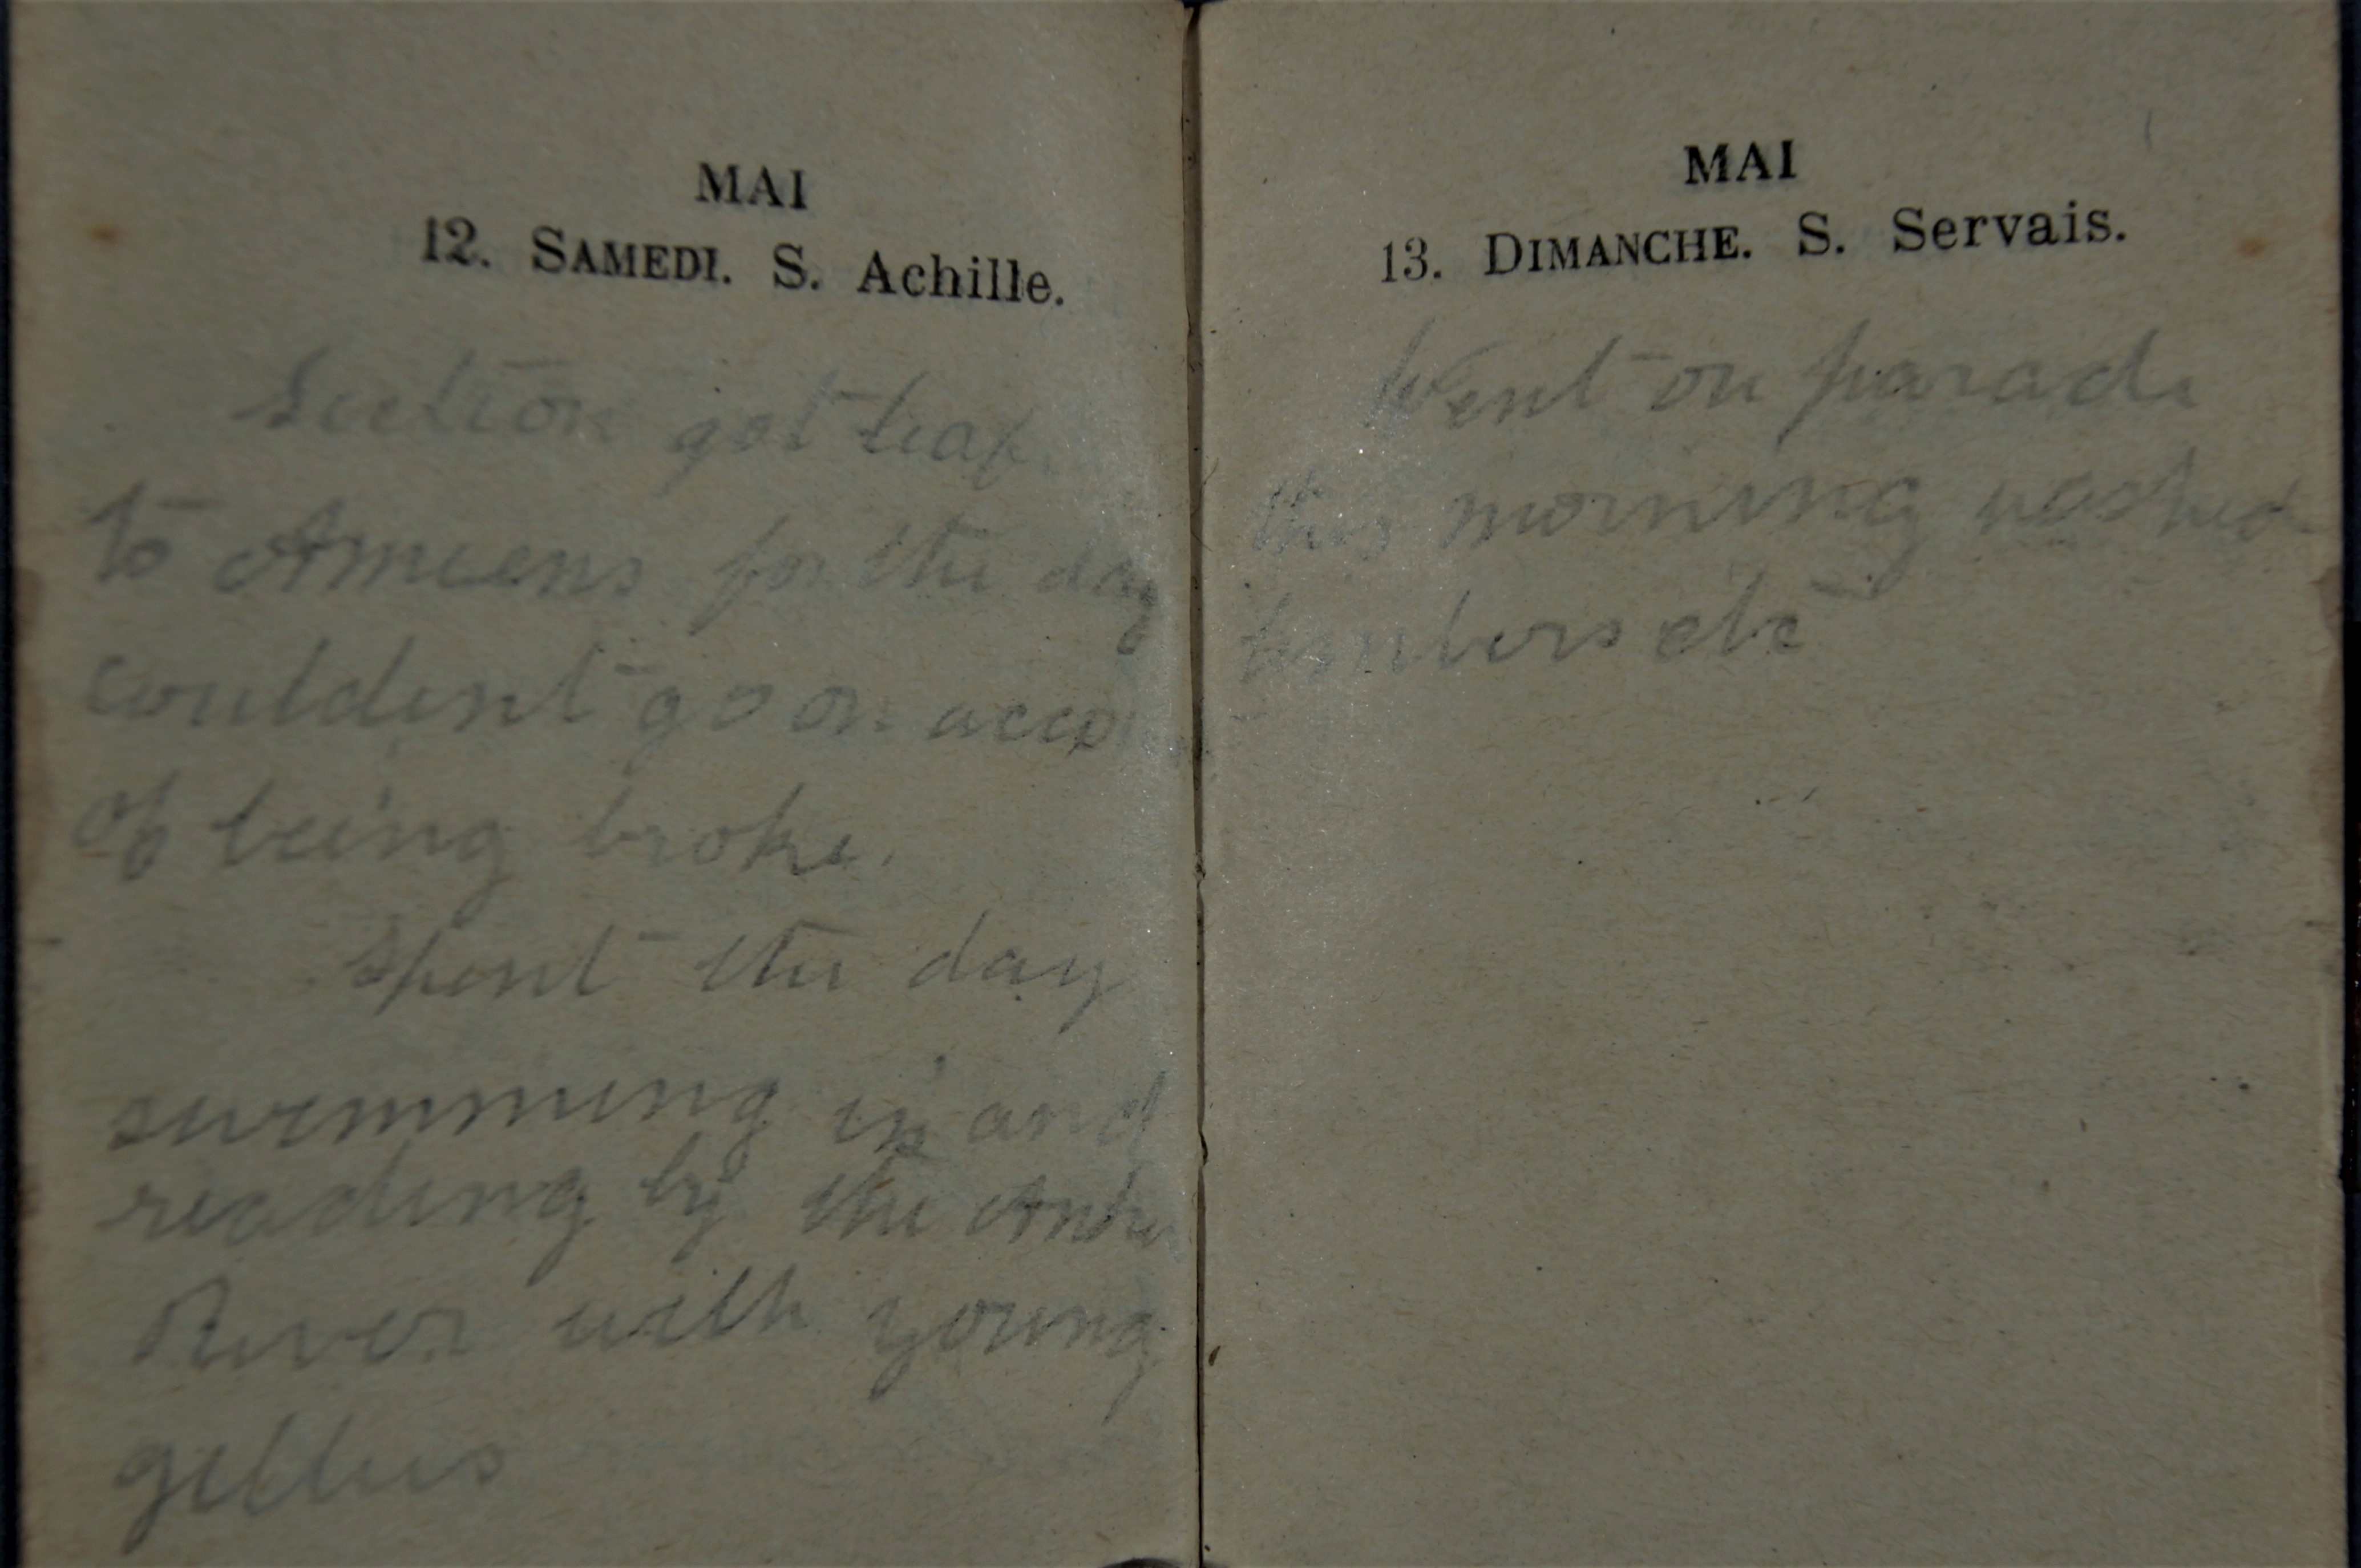 MAI
12. SAMEDI. S. Achille.
Section got leaf
to Amiens for the day
couldent go on
of being broke.
Spent the day
swimming in and
reading by the
River with young
MAI
13. DIMANCHE. S. Servais.
Went on parade
this morning washed
limbers etc